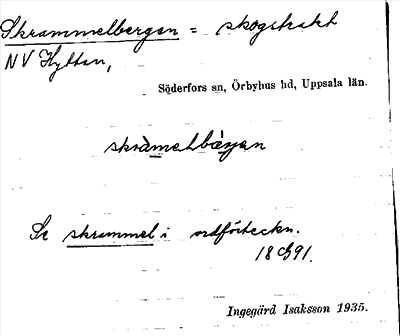 Skrammelbergen = skogstrakt
NV Hyttan,
Söderfors sn, Örbyhus hd, Uppsala län.
skràmelbæ̀rjan
Se skrammel i ordförteckn.
Ingegärd Isaksson 1935.